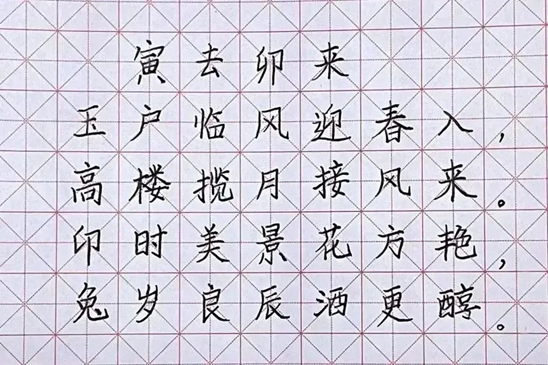 寅去卯来
玉户临风迎春入，
高楼揽月接风来。
卯时美景花方艳，
兔岁良辰酒更醇。